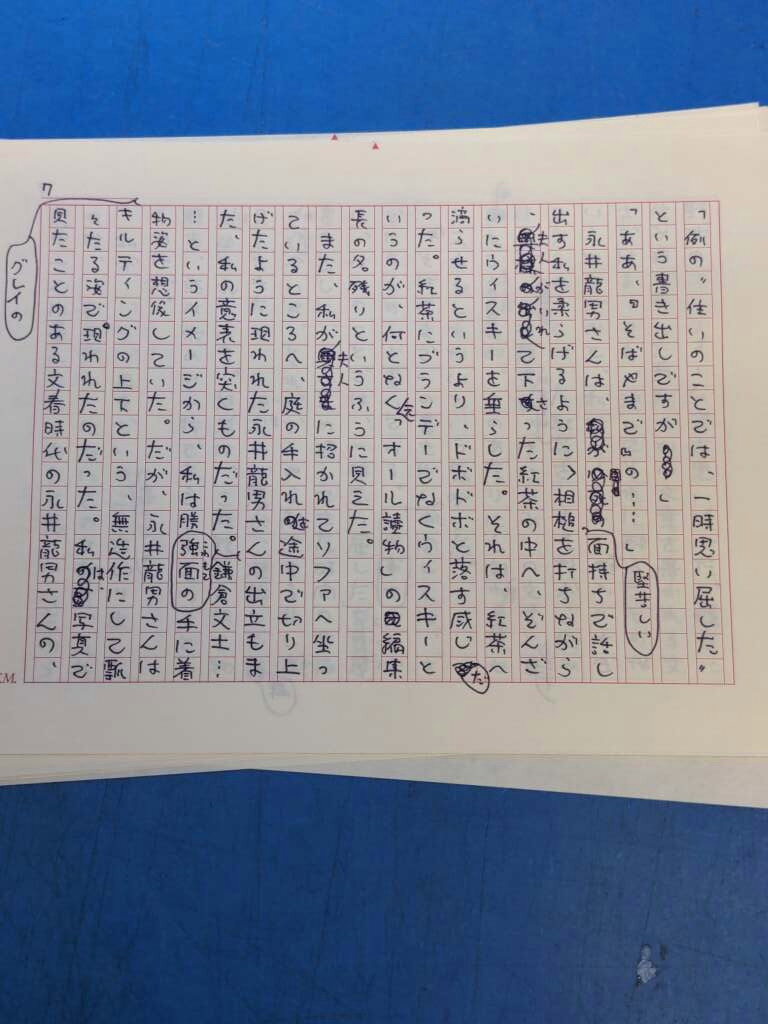 7
「例の〝住いのことでは、一時思い屈した〟
という書き出しですが」
「ああ、『そばやまで』の……」
永井龍男さんは、堅苦しい面持ちで話し
出す私を柔らげるように、相槌を打ちながら
、夫人がいれて下さった紅茶の中へ、ぞんざ
いにウィスキーを垂らした。それは、紅茶へ
滴らせるというより、ドボドボと落す感じだ
った。紅茶にブランデーでなくウィスキーと
いうのが、何となく「オール讀物」の編集
長の名残りというふうに見えた。
また、私が夫人に招かれてソファへ坐っ
ているところへ、庭の手入れの途中で切り上
げたように現われた永井龍男さんの出立もま
た、私の意表を突くものだった。鎌倉文士…
…というイメージから、私は勝手に着
強面の
物姿を想像していた。だが、永井龍男さんは
グレイの
キルティングの上下という、無造作にして
たる姿で現われたのだった。私は、写真で
見たことのある文春時代の永井龍男さんの、